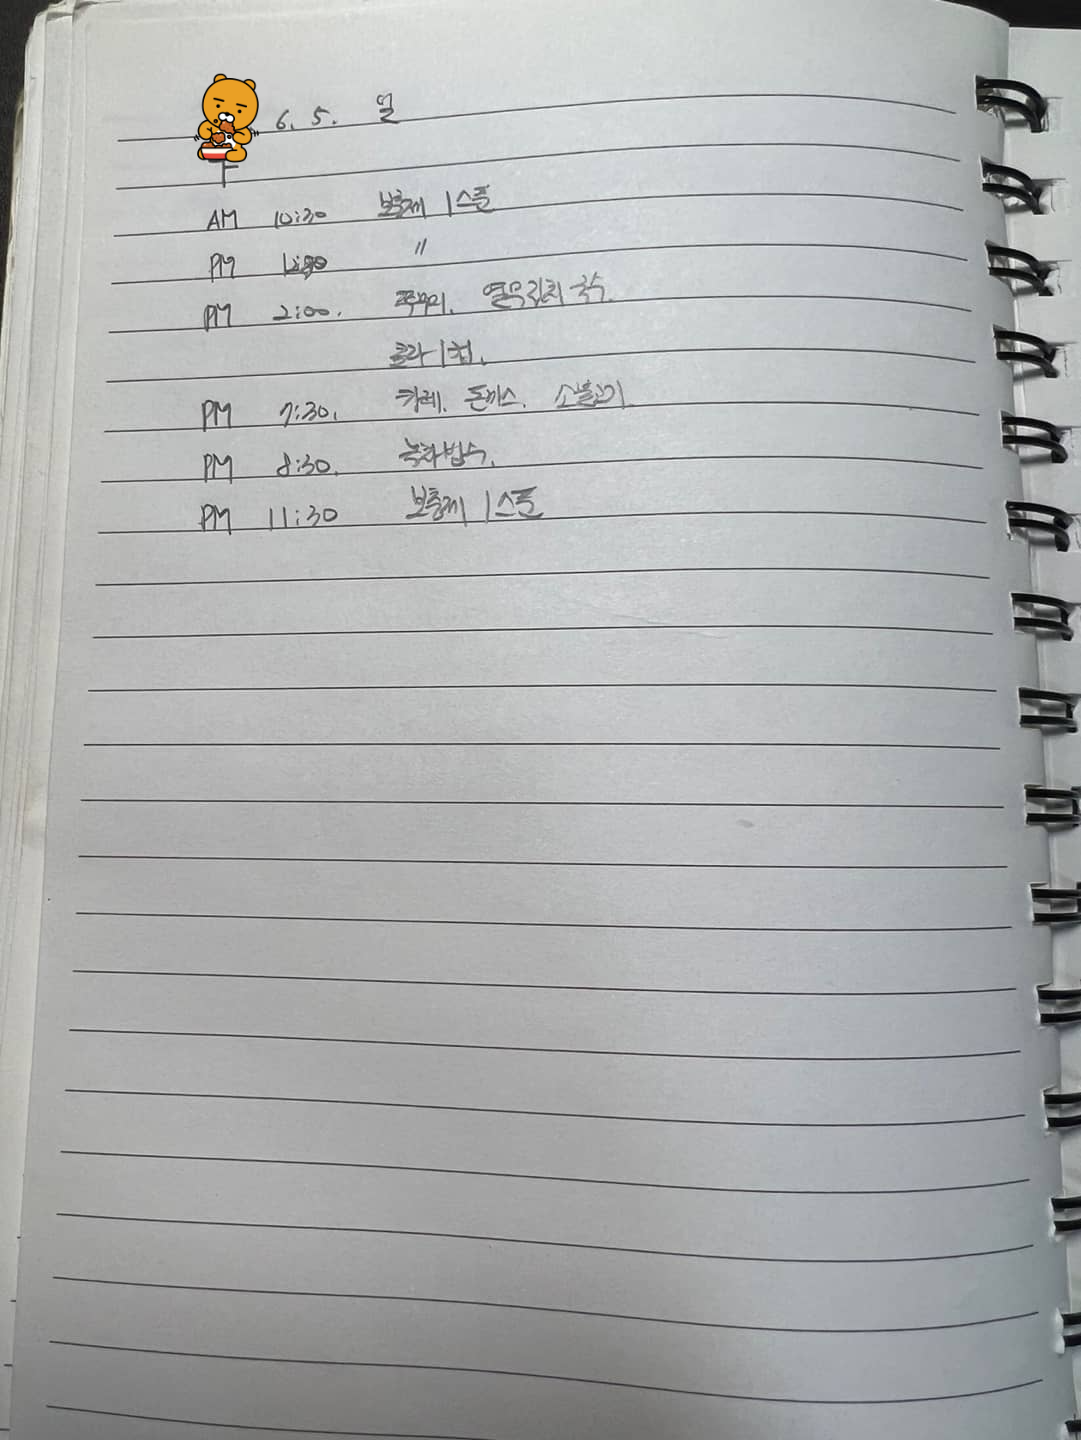 6. 5. 일
AM 10:30 보충제 1스푼
PM 〃
PM 2:00. 쭈꾸미. 열무김치 국수.
콜라 1컵.
PM 7:30. 카레. 돈까스. 소불고기
PM 8:30. 녹차빙수.
PM 11:30 보충제 1스푼